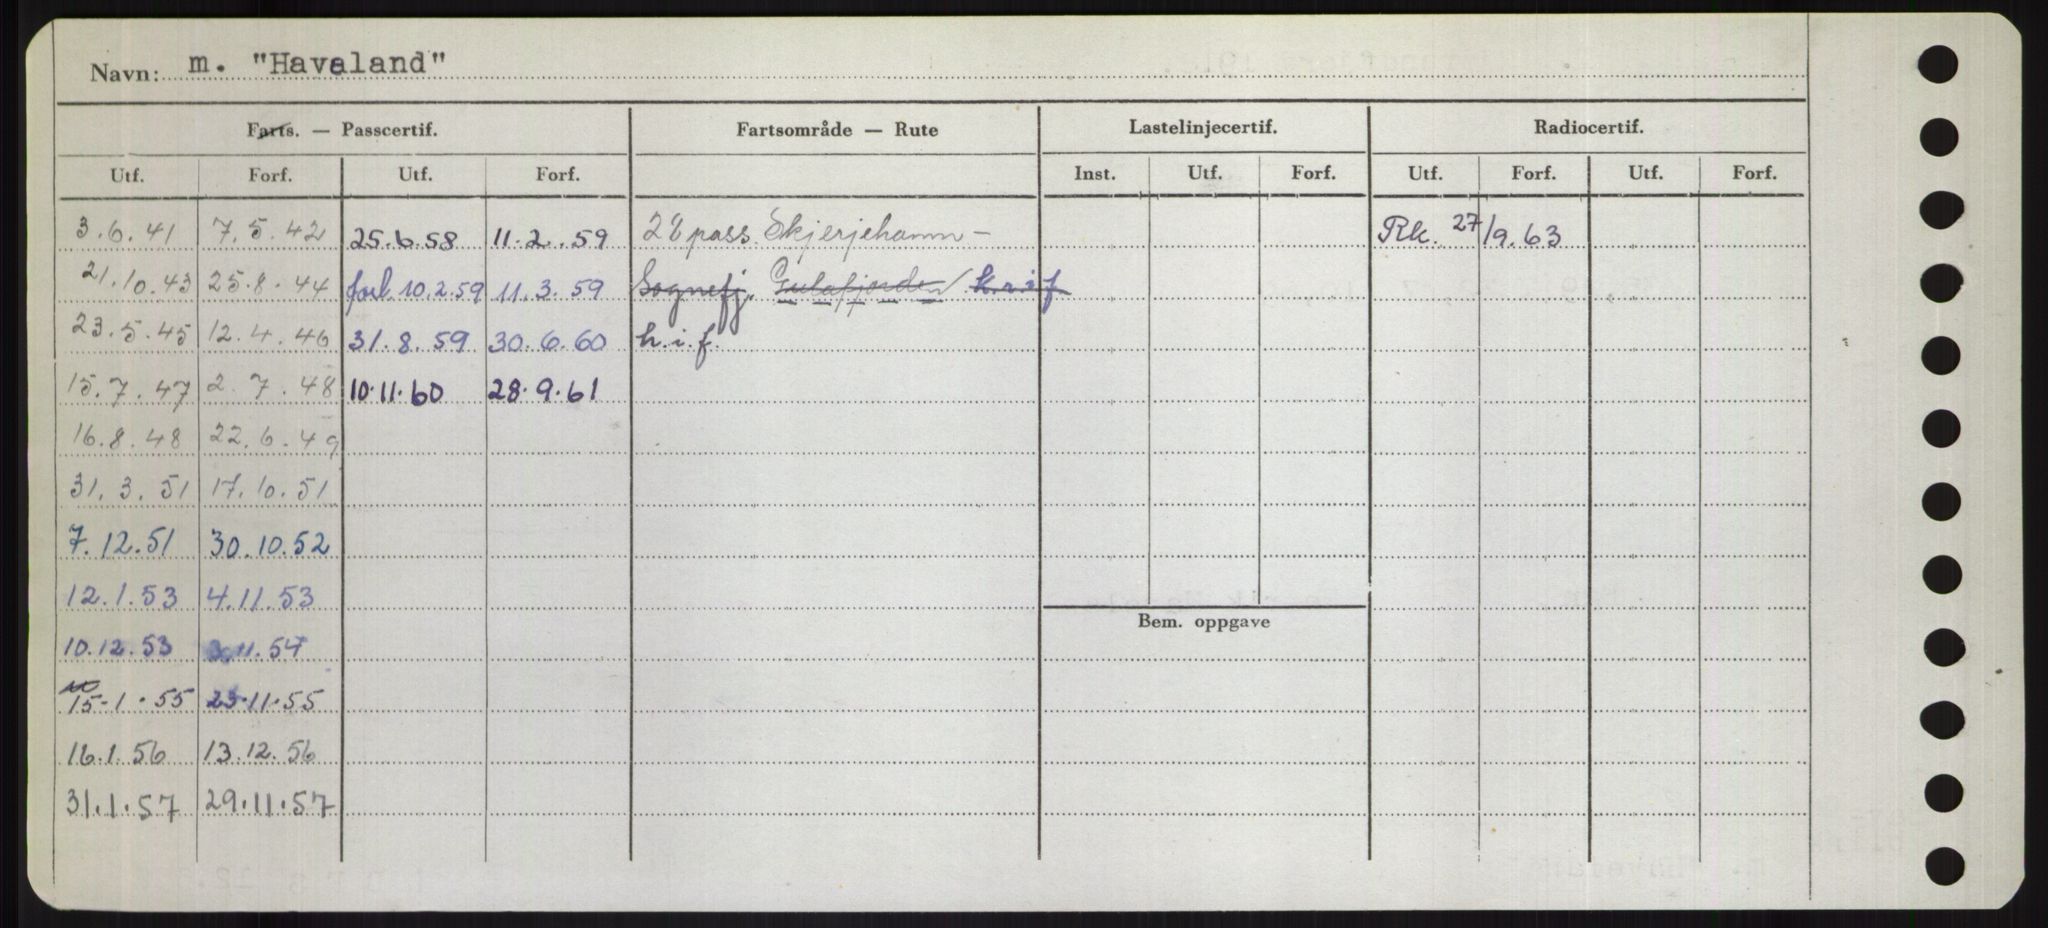 Navn: m. "Havaland"
Farts. — Passcertif. Fartsområde — Rute Lastelinjecertif. Radiocertif.
Utf. Forf. Utf. Forf. Inst. Utf. Forf. Utf. Forf. Utf. Forf.
3.6.41 7.5.42 25.6.58 11.2.59 28 pass. Skjerjehamn – Rk. 27/9.63
21.10.43 25.8.44 forl. 10.2.59 11.3.59 Sognefj. Gulafjorden h.i.f
23.5.45 12.4.46 31.8.59 30.6.60 h.i.f.
15.7.47 2.7.48 10.11.60 28.9.61
16.8.48 22.6.49
31.3.51 17.10.51
7.12.51 30.10.52
12.1.53 4.11.53
Bem. oppgave
10.12.53 3.11.54
15-1.55 23.11.55
16.1.56 13.12.56
31.1.57 29.11.57